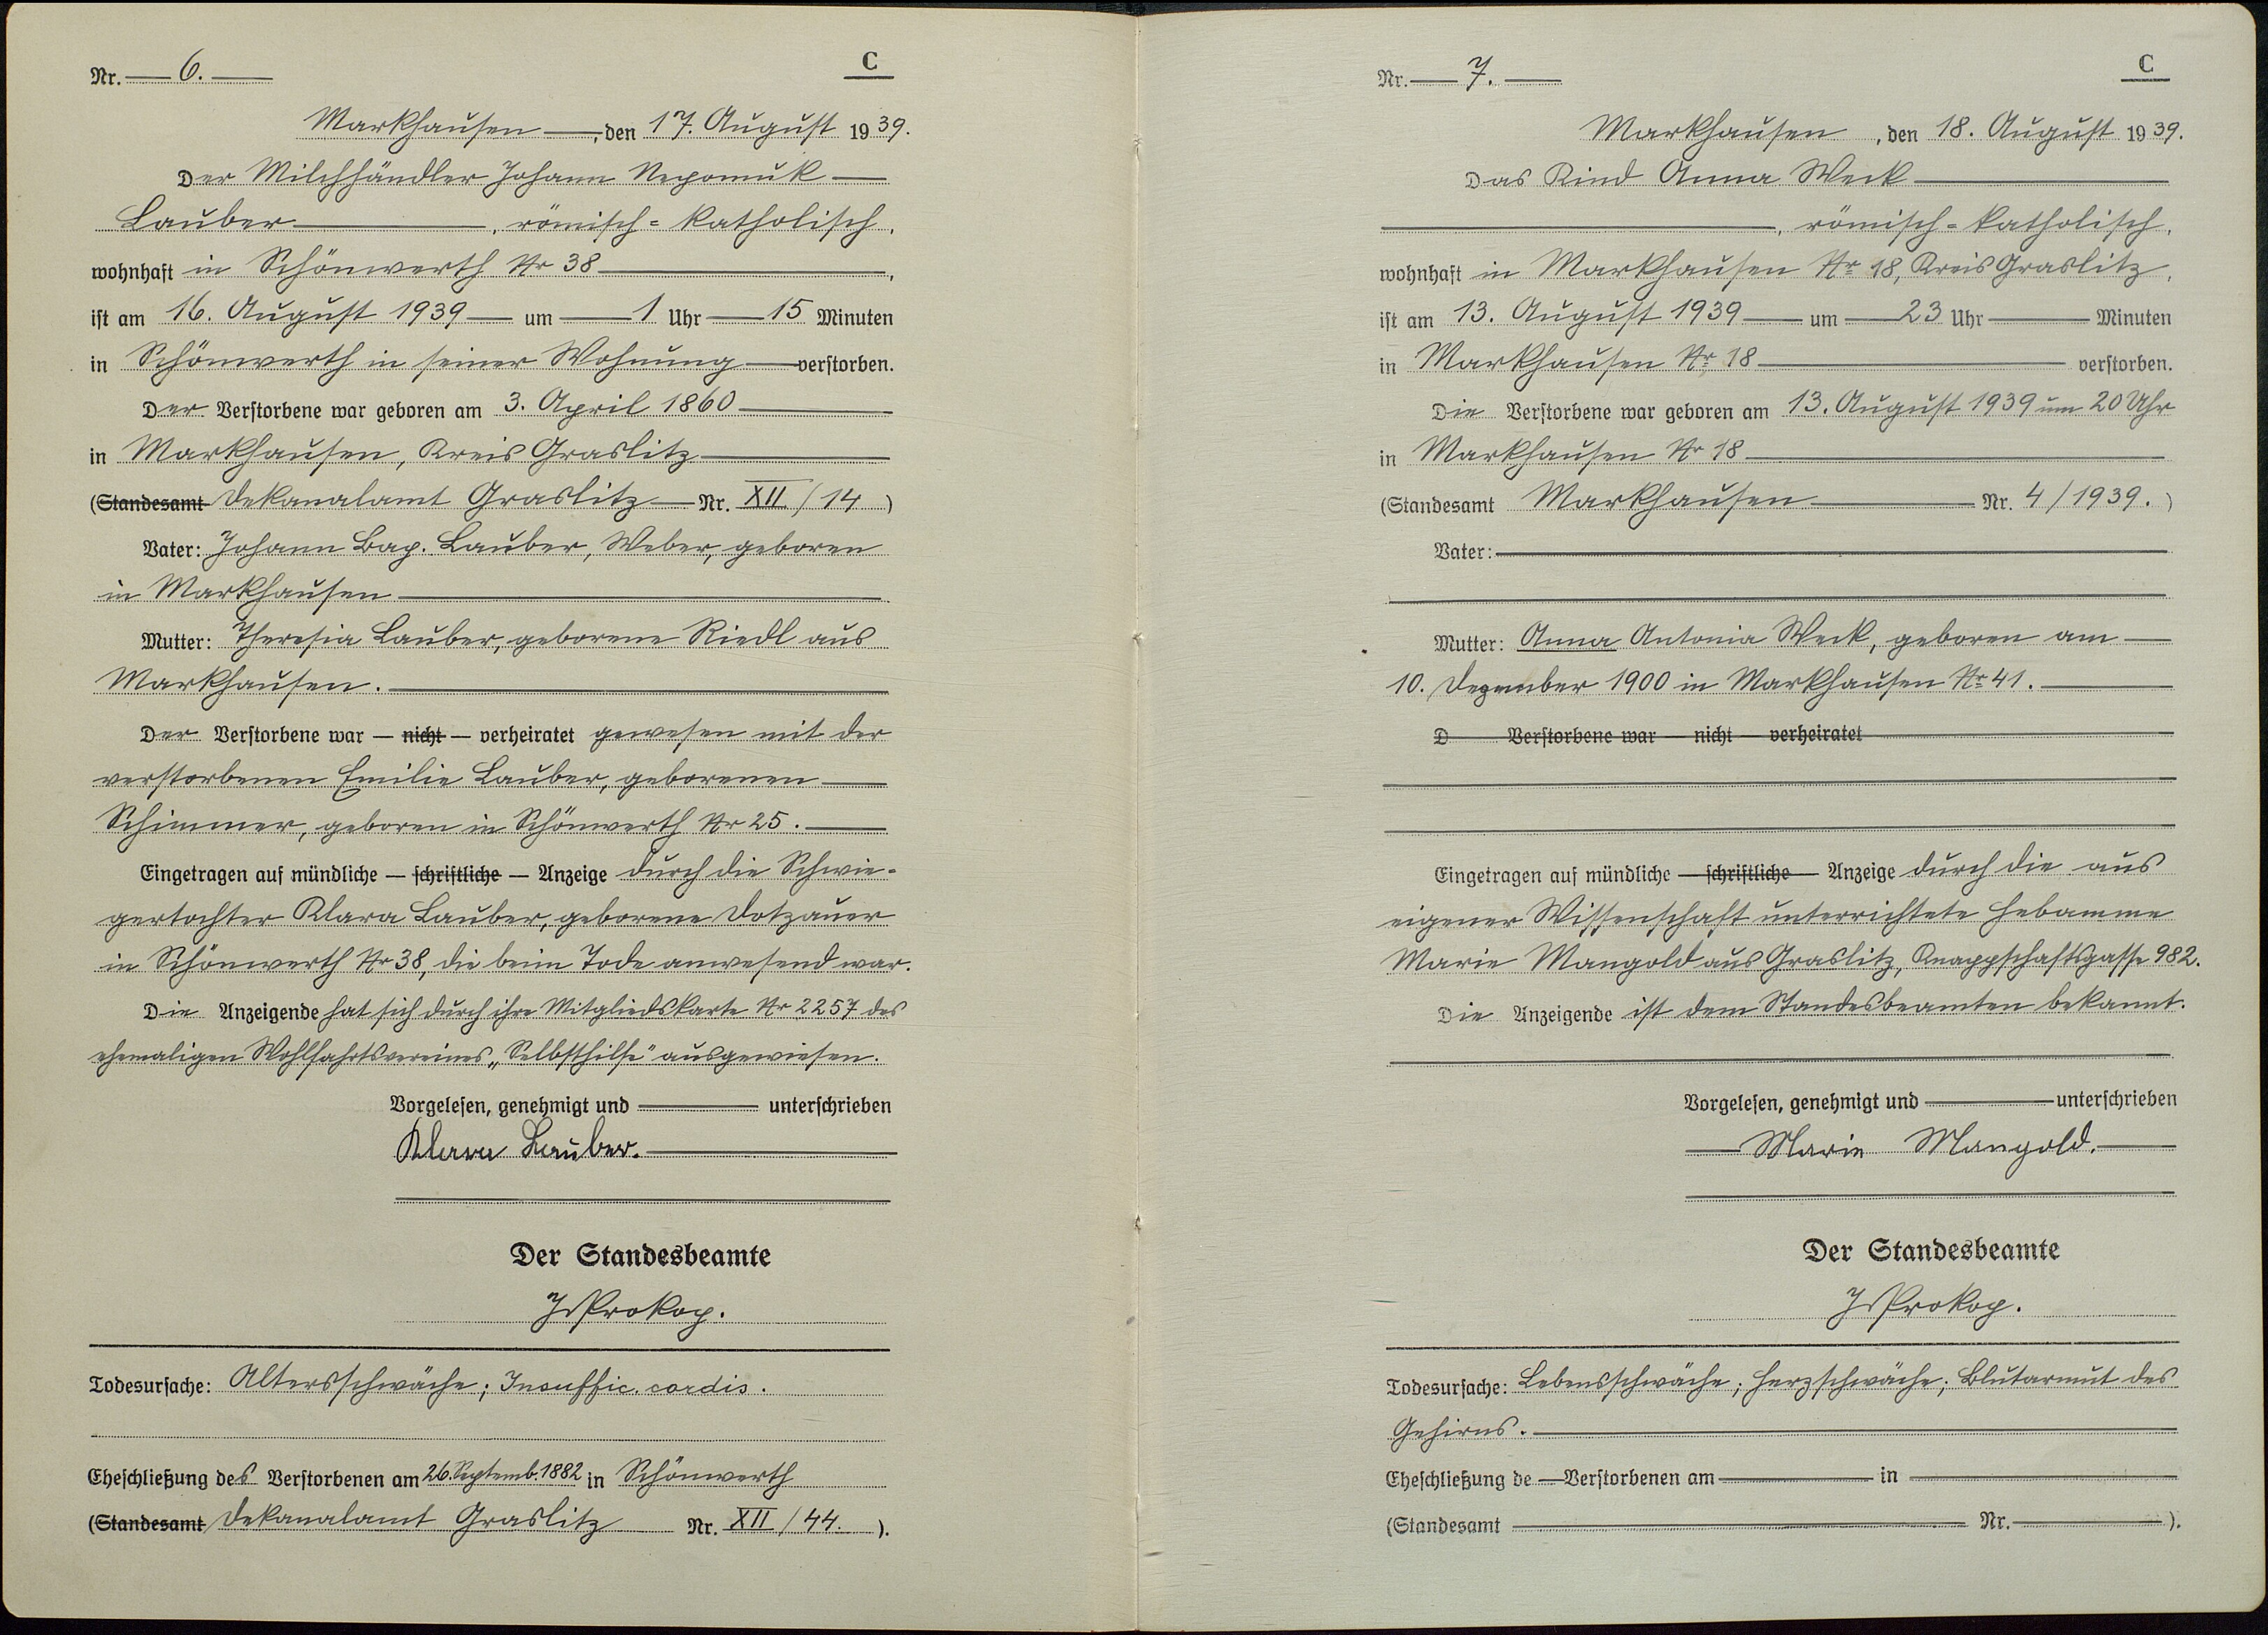 Nr. 6.
C
Markhausen, den 17. August 1939.
Der Milchhändler Johann Nepomuk
Lauber, römisch-katholisch,
wohnhaft in Schönwerth Nr 38,
ist am 16. August 1939 um 1 Uhr 15 Minuten
in Schönwerth in seiner Wohnung verstorben.
Der Verstorbene war geboren am 3. April 1860
in Markhausen, Kreis Graslitz
(Standesamt Dekanalamt Graslitz Nr. XII/14)
Vater: Johann Bap. Lauber, Weber, geboren
in Markhausen
Mutter: Theresia Lauber, geborene Riedl aus
Markhausen.
Der Verstorbene war — nicht — verheiratet gewesen mit der
verstorbenen Emilie Lauber, geborenen
Schimmer, geboren in Schönwerth Nr 25.
Eingetragen auf mündliche — schriftliche — Anzeige durch die Schwie-
gertochter Klara Lauber, geborene Dotzauer
in Schönwerth Nr 38, die beim Tode anwesend war.
Die Anzeigende hat sich durch ihre Mitgliedskarte Nr 2257 des
ehemaligen Wohlfahrtsvereines „Selbsthilfe" ausgewiesen.
Vorgelesen, genehmigt und unterschrieben
Klara Lauber.
Der Standesbeamte
J Prokop.
Todesursache: Altersschwäche; Insuffic. cordis.
Eheschließung des Verstorbenen am 26. Septemb. 1882 in Schönwerth
(Standesamt Dekanalamt Graslitz Nr. XII/44.).
Nr. 7.
C
Markhausen, den 18. August 1939.
Das Kind Anna Weck
, römisch-katholisch,
wohnhaft in Markhausen Nr 18, Kreis Graslitz,
ist am 13. August 1939 um 23 Uhr Minuten
in Markhausen Nr. 18 verstorben.
Die Verstorbene war geboren am 13. August 1939 um 20 Uhr
in Markhausen Nr 18
(Standesamt Markhausen Nr. 4/1939.)
Vater:
Mutter: Anna Antonia Weck, geboren am
10. Dezember 1900 in Markhausen Nr 41.
D Verstorbene war — nicht — verheiratet
Eingetragen auf mündliche — schriftliche — Anzeige durch die aus
eigener Wissenschaft unterrichtete Hebamme
Marie Mangold aus Graslitz, Knappschaftsgasse 982.
Die Anzeigende ist dem Standesbeamten bekannt.
Vorgelesen, genehmigt und unterschrieben
Marie Mangold.
Der Standesbeamte
J Prokop.
Todesursache: Lebensschwäche; Herzschwäche; Blutarmut des
Gehirns.
Eheschließung de Verstorbenen am in
(Standesamt Nr. ).